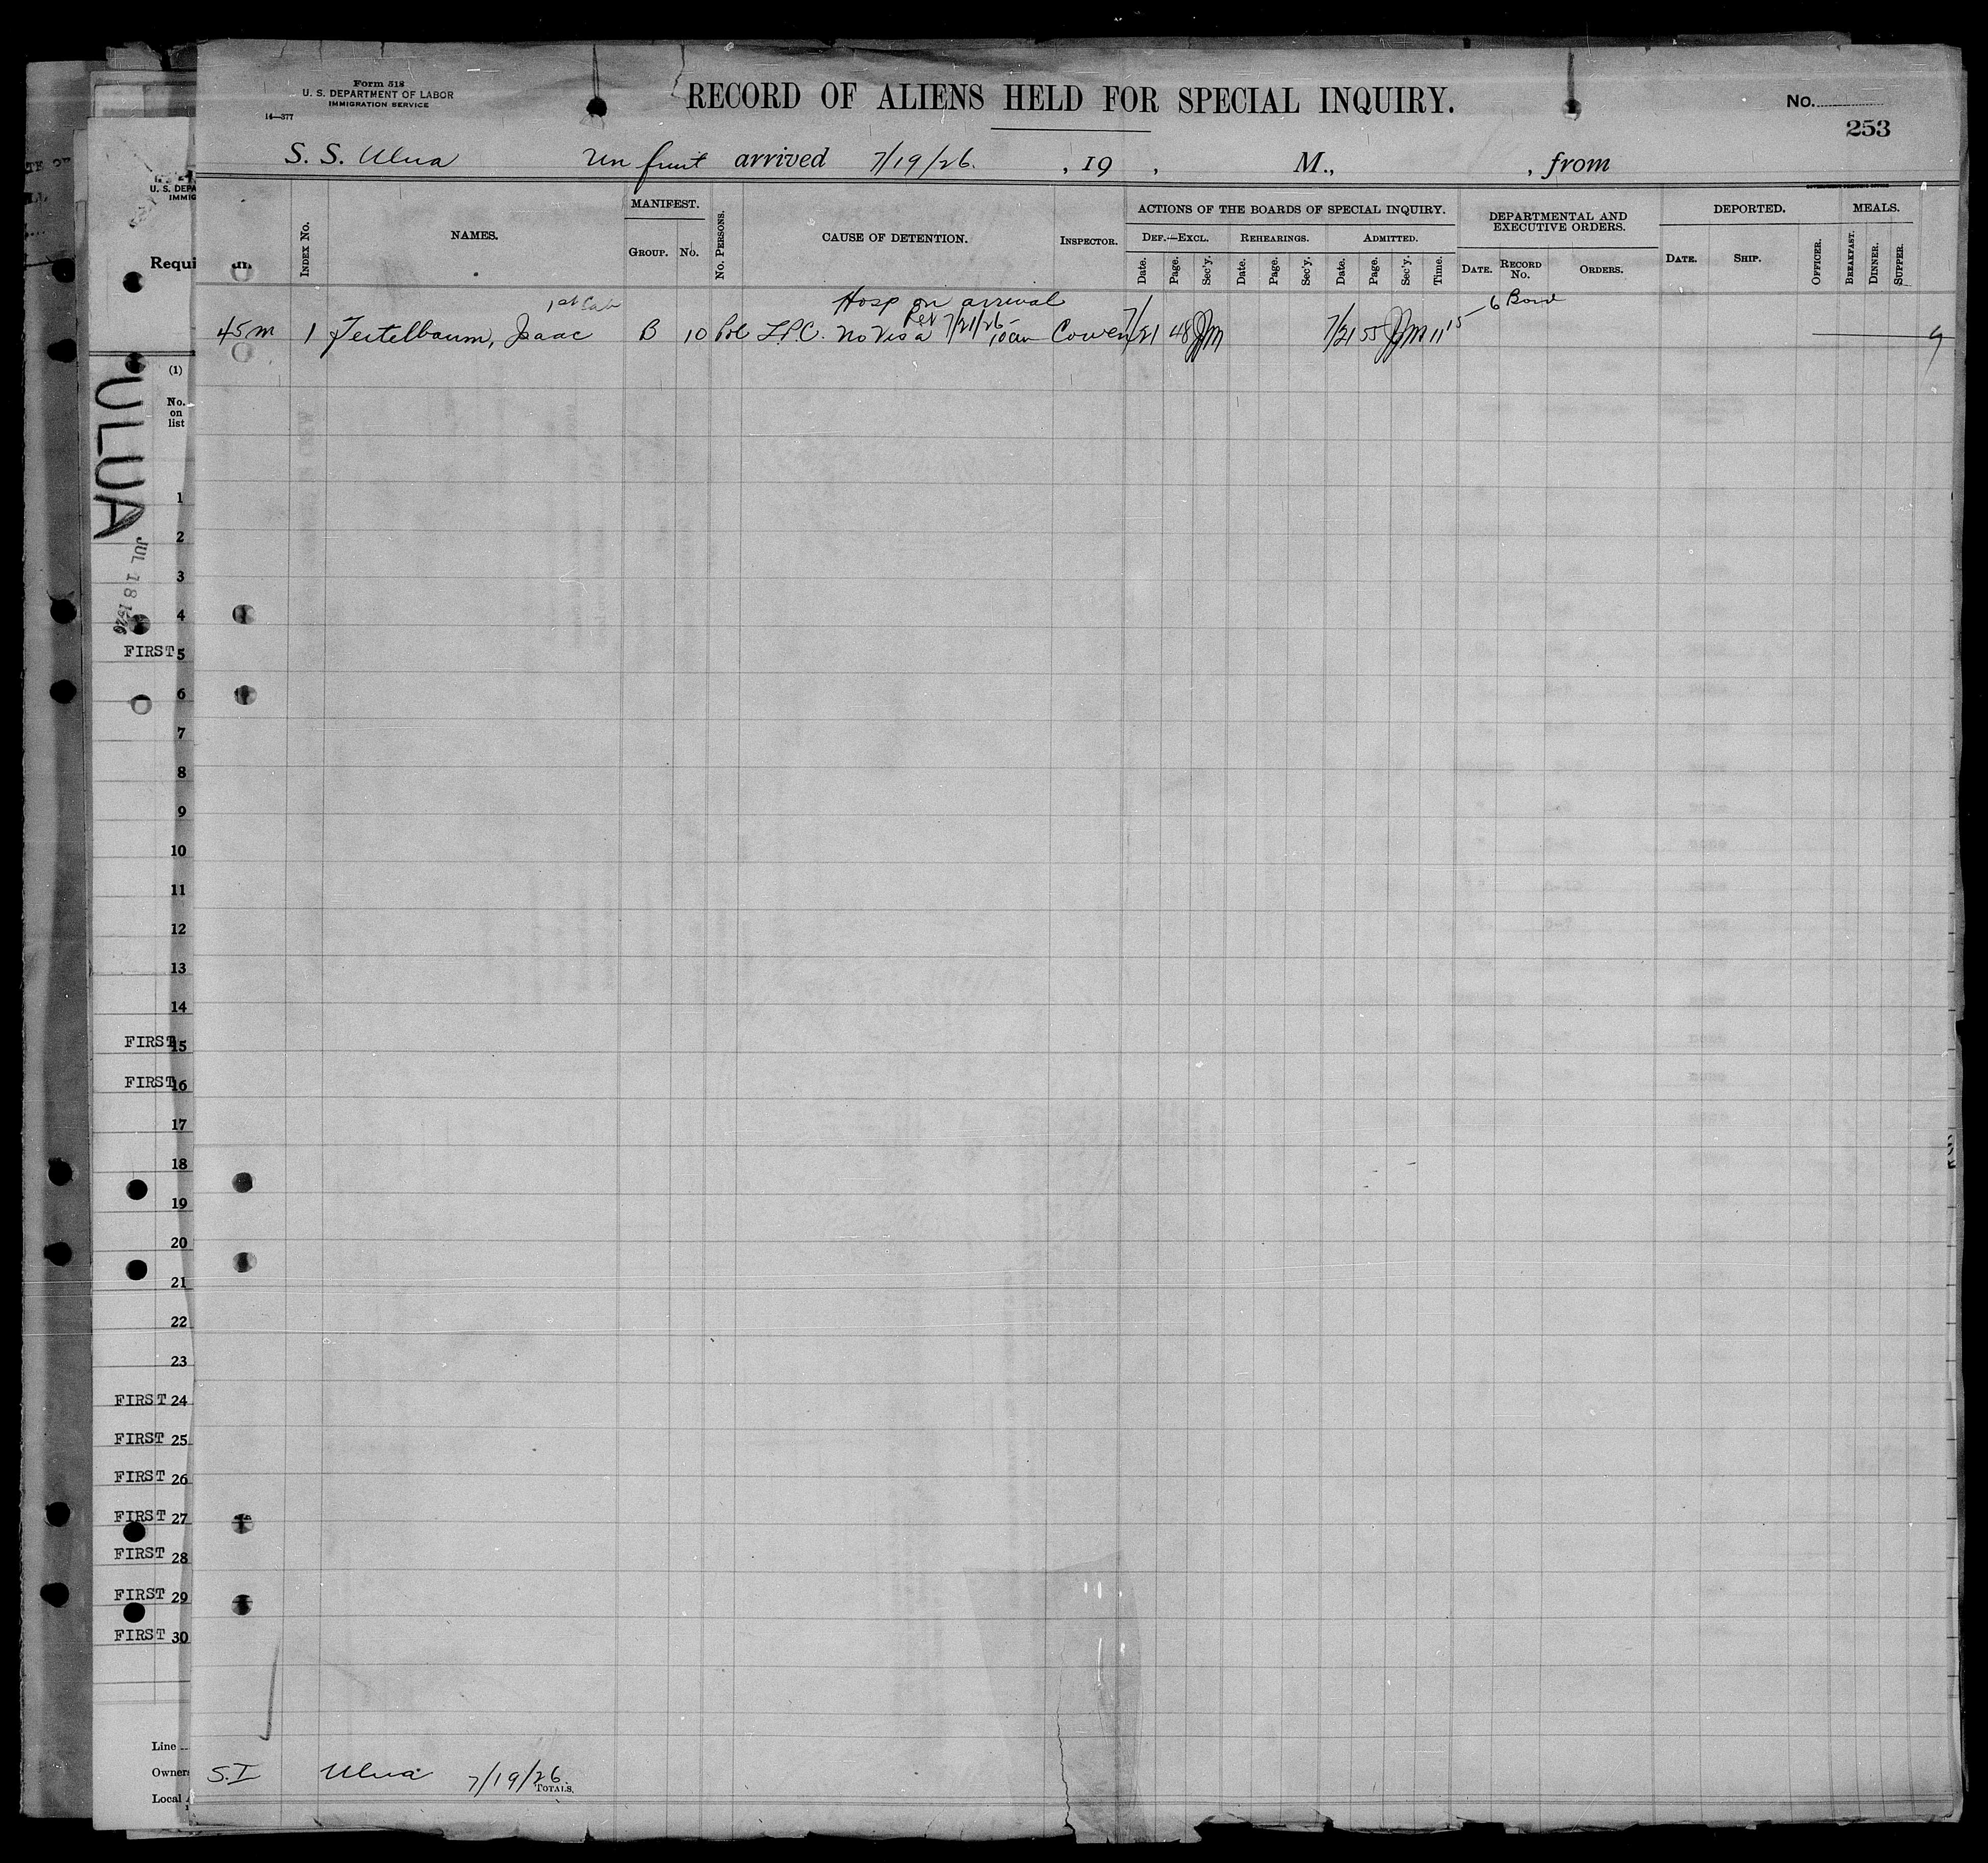 Form 518
U. S. DEPARTMENT OF LABOR
IMMIGRATION SERVICE
14—377
RECORD OF ALIENS HELD FOR SPECIAL INQUIRY.
No.
253
S. S. Ulua Un fruit arrived 7/19/26. , 19 , M., , from
INDEX No.
NAMES.
MANIFEST.
GROUP. No.
No. PERSONS.
CAUSE OF DETENTION.
INSPECTOR.
ACTIONS OF THE BOARDS OF SPECIAL INQUIRY.
DEF.—EXCL. REHEARINGS. ADMITTED.
Date. Page. Sec'y. Date. Page. Sec'y. Date. Page. Sec'y. Time.
DEPARTMENTAL AND
EXECUTIVE ORDERS.
DATE. RECORD No. ORDERS.
DEPORTED.
DATE. SHIP. OFFICER.
MEALS.
BREAKFAST. DINNER. SUPPER.
1st Cab Hosp on arrival 6 Bond
Rel 7/21/26
45m 1 Teitelbaum, Isaac B 10 Pol L.P.C. No Visa 10am Cowen 7/21 48 JM 7/21 55 JM 11 15 9
S.I Ulua 7/19/26.
TOTALS.
U. S. DEPA
IMMIG
Requi
(1)
No.
on
list
ULUA
JUL 18 1926
1
2
3
4
FIRST 5
6
7
8
9
10
11
12
13
14
FIRST 15
FIRST 16
17
18
19
20
21
22
23
FIRST 24
FIRST 25
FIRST 26
FIRST 27
FIRST 28
FIRST 29
FIRST 30
Line
Owners
Local